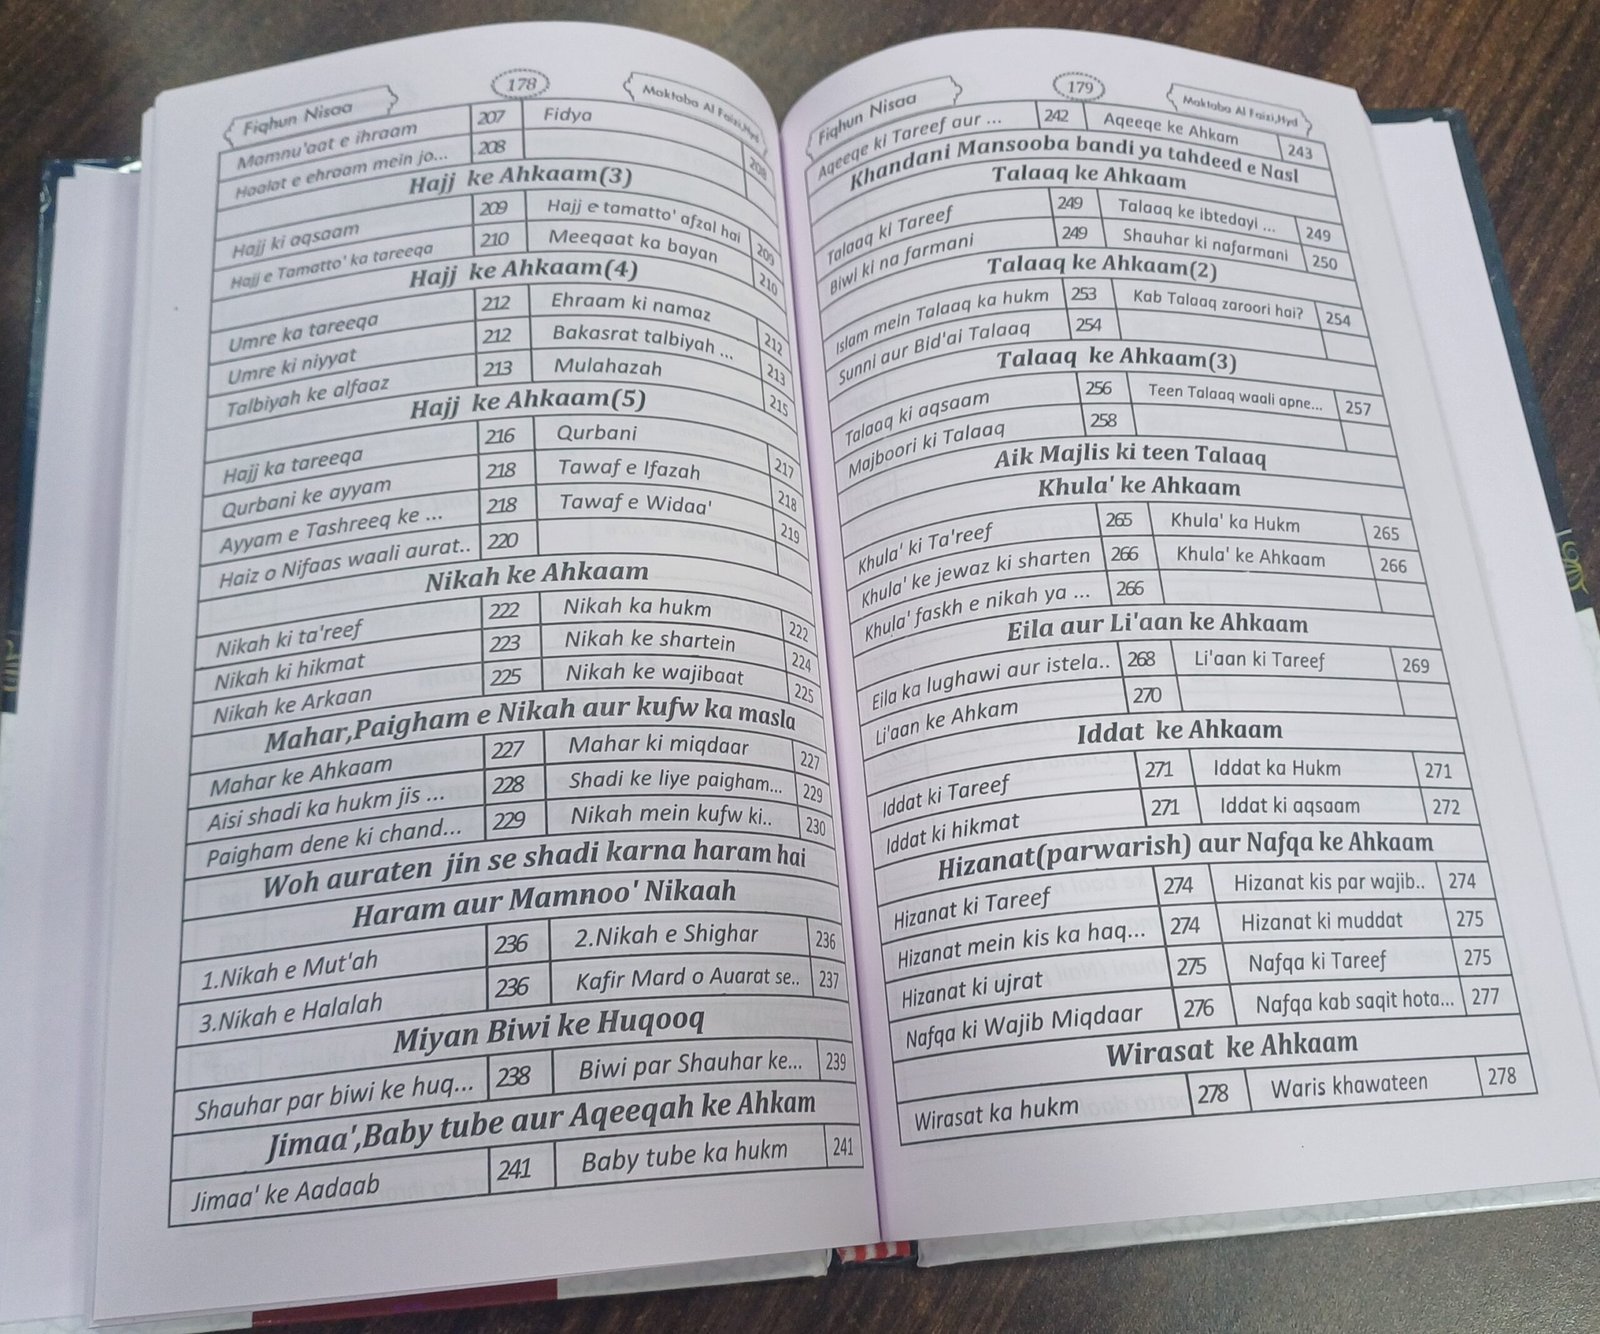 Fiqhun Nisaa 178 Maktaba Al Faizi,Hyd
Mamnu'aat e ihraam 207 Fidya 208
Haalat e ehraam mein jo... 208
Hajj ke Ahkaam(3)
Hajj ki aqsaam 209 Hajj e tamatto' afzal hai 209
Hajj e Tamatto' ka tareeqa 210 Meeqaat ka bayan 210
Hajj ke Ahkaam(4)
Umre ka tareeqa 212 Ehraam ki namaz 212
Umre ki niyyat 212 Bakasrat talbiyah ... 213
Talbiyah ke alfaaz 213 Mulahazah 215
Hajj ke Ahkaam(5)
Hajj ka tareeqa 216 Qurbani 217
Qurbani ke ayyam 218 Tawaf e Ifazah 218
Ayyam e Tashreeq ke ... 218 Tawaf e Widaa' 219
Haiz o Nifaas waali aurat.. 220
Nikah ke Ahkaam
Nikah ki ta'reef 222 Nikah ka hukm 222
Nikah ki hikmat 223 Nikah ke shartein 224
Nikah ke Arkaan 225 Nikah ke wajibaat 225
Mahar,Paigham e Nikah aur kufw ka masla
Mahar ke Ahkaam 227 Mahar ki miqdaar 227
Aisi shadi ka hukm jis ... 228 Shadi ke liye paigham... 229
Paigham dene ki chand... 229 Nikah mein kufw ki.. 230
Woh auraten jin se shadi karna haram hai
Haram aur Mamnoo' Nikaah
1.Nikah e Mut'ah 236 2.Nikah e Shighar 236
3.Nikah e Halalah 236 Kafir Mard o Auarat se.. 237
Miyan Biwi ke Huqooq
Shauhar par biwi ke huq... 238 Biwi par Shauhar ke... 239
Jimaa',Baby tube aur Aqeeqah ke Ahkam
Jimaa' ke Aadaab 241 Baby tube ka hukm 241
Fiqhun Nisaa 179 Maktaba Al Faizi,Hyd
Aqeeqe ki Tareef aur ... 242 Aqeeqe ke Ahkam 243
Khandani Mansooba bandi ya tahdeed e Nasl
Talaaq ke Ahkaam
Talaaq ki Tareef 249 Talaaq ke ibtedayi ... 249
Biwi ki na farmani 249 Shauhar ki nafarmani 250
Talaaq ke Ahkaam(2)
Islam mein Talaaq ka hukm 253 Kab Talaaq zaroori hai? 254
Sunni aur Bid'ai Talaaq 254
Talaaq ke Ahkaam(3)
Talaaq ki aqsaam 256 Teen Talaaq waali apne... 257
Majboori ki Talaaq 258
Aik Majlis ki teen Talaaq
Khula' ke Ahkaam
Khula' ki Ta'reef 265 Khula' ka Hukm 265
Khula' ke jewaz ki sharten 266 Khula' ke Ahkaam 266
Khula' faskh e nikah ya ... 266
Eila aur Li'aan ke Ahkaam
Eila ka lughawi aur istela.. 268 Li'aan ki Tareef 269
Li'aan ke Ahkam 270
Iddat ke Ahkaam
Iddat ki Tareef 271 Iddat ka Hukm 271
Iddat ki hikmat 271 Iddat ki aqsaam 272
Hizanat(parwarish) aur Nafqa ke Ahkaam
Hizanat ki Tareef 274 Hizanat kis par wajib.. 274
Hizanat mein kis ka haq... 274 Hizanat ki muddat 275
Hizanat ki ujrat 275 Nafqa ki Tareef 275
Nafqa ki Wajib Miqdaar 276 Nafqa kab saqit hota... 277
Wirasat ke Ahkaam
Wirasat ka hukm 278 Waris khawateen 278